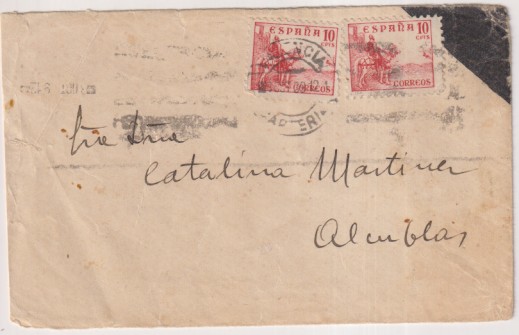 ESPAÑA 10 CTS
CORREOS
ESPAÑA 10 CTS
CORREOS
Sra Dña
Catalina Martinez
Alcublas